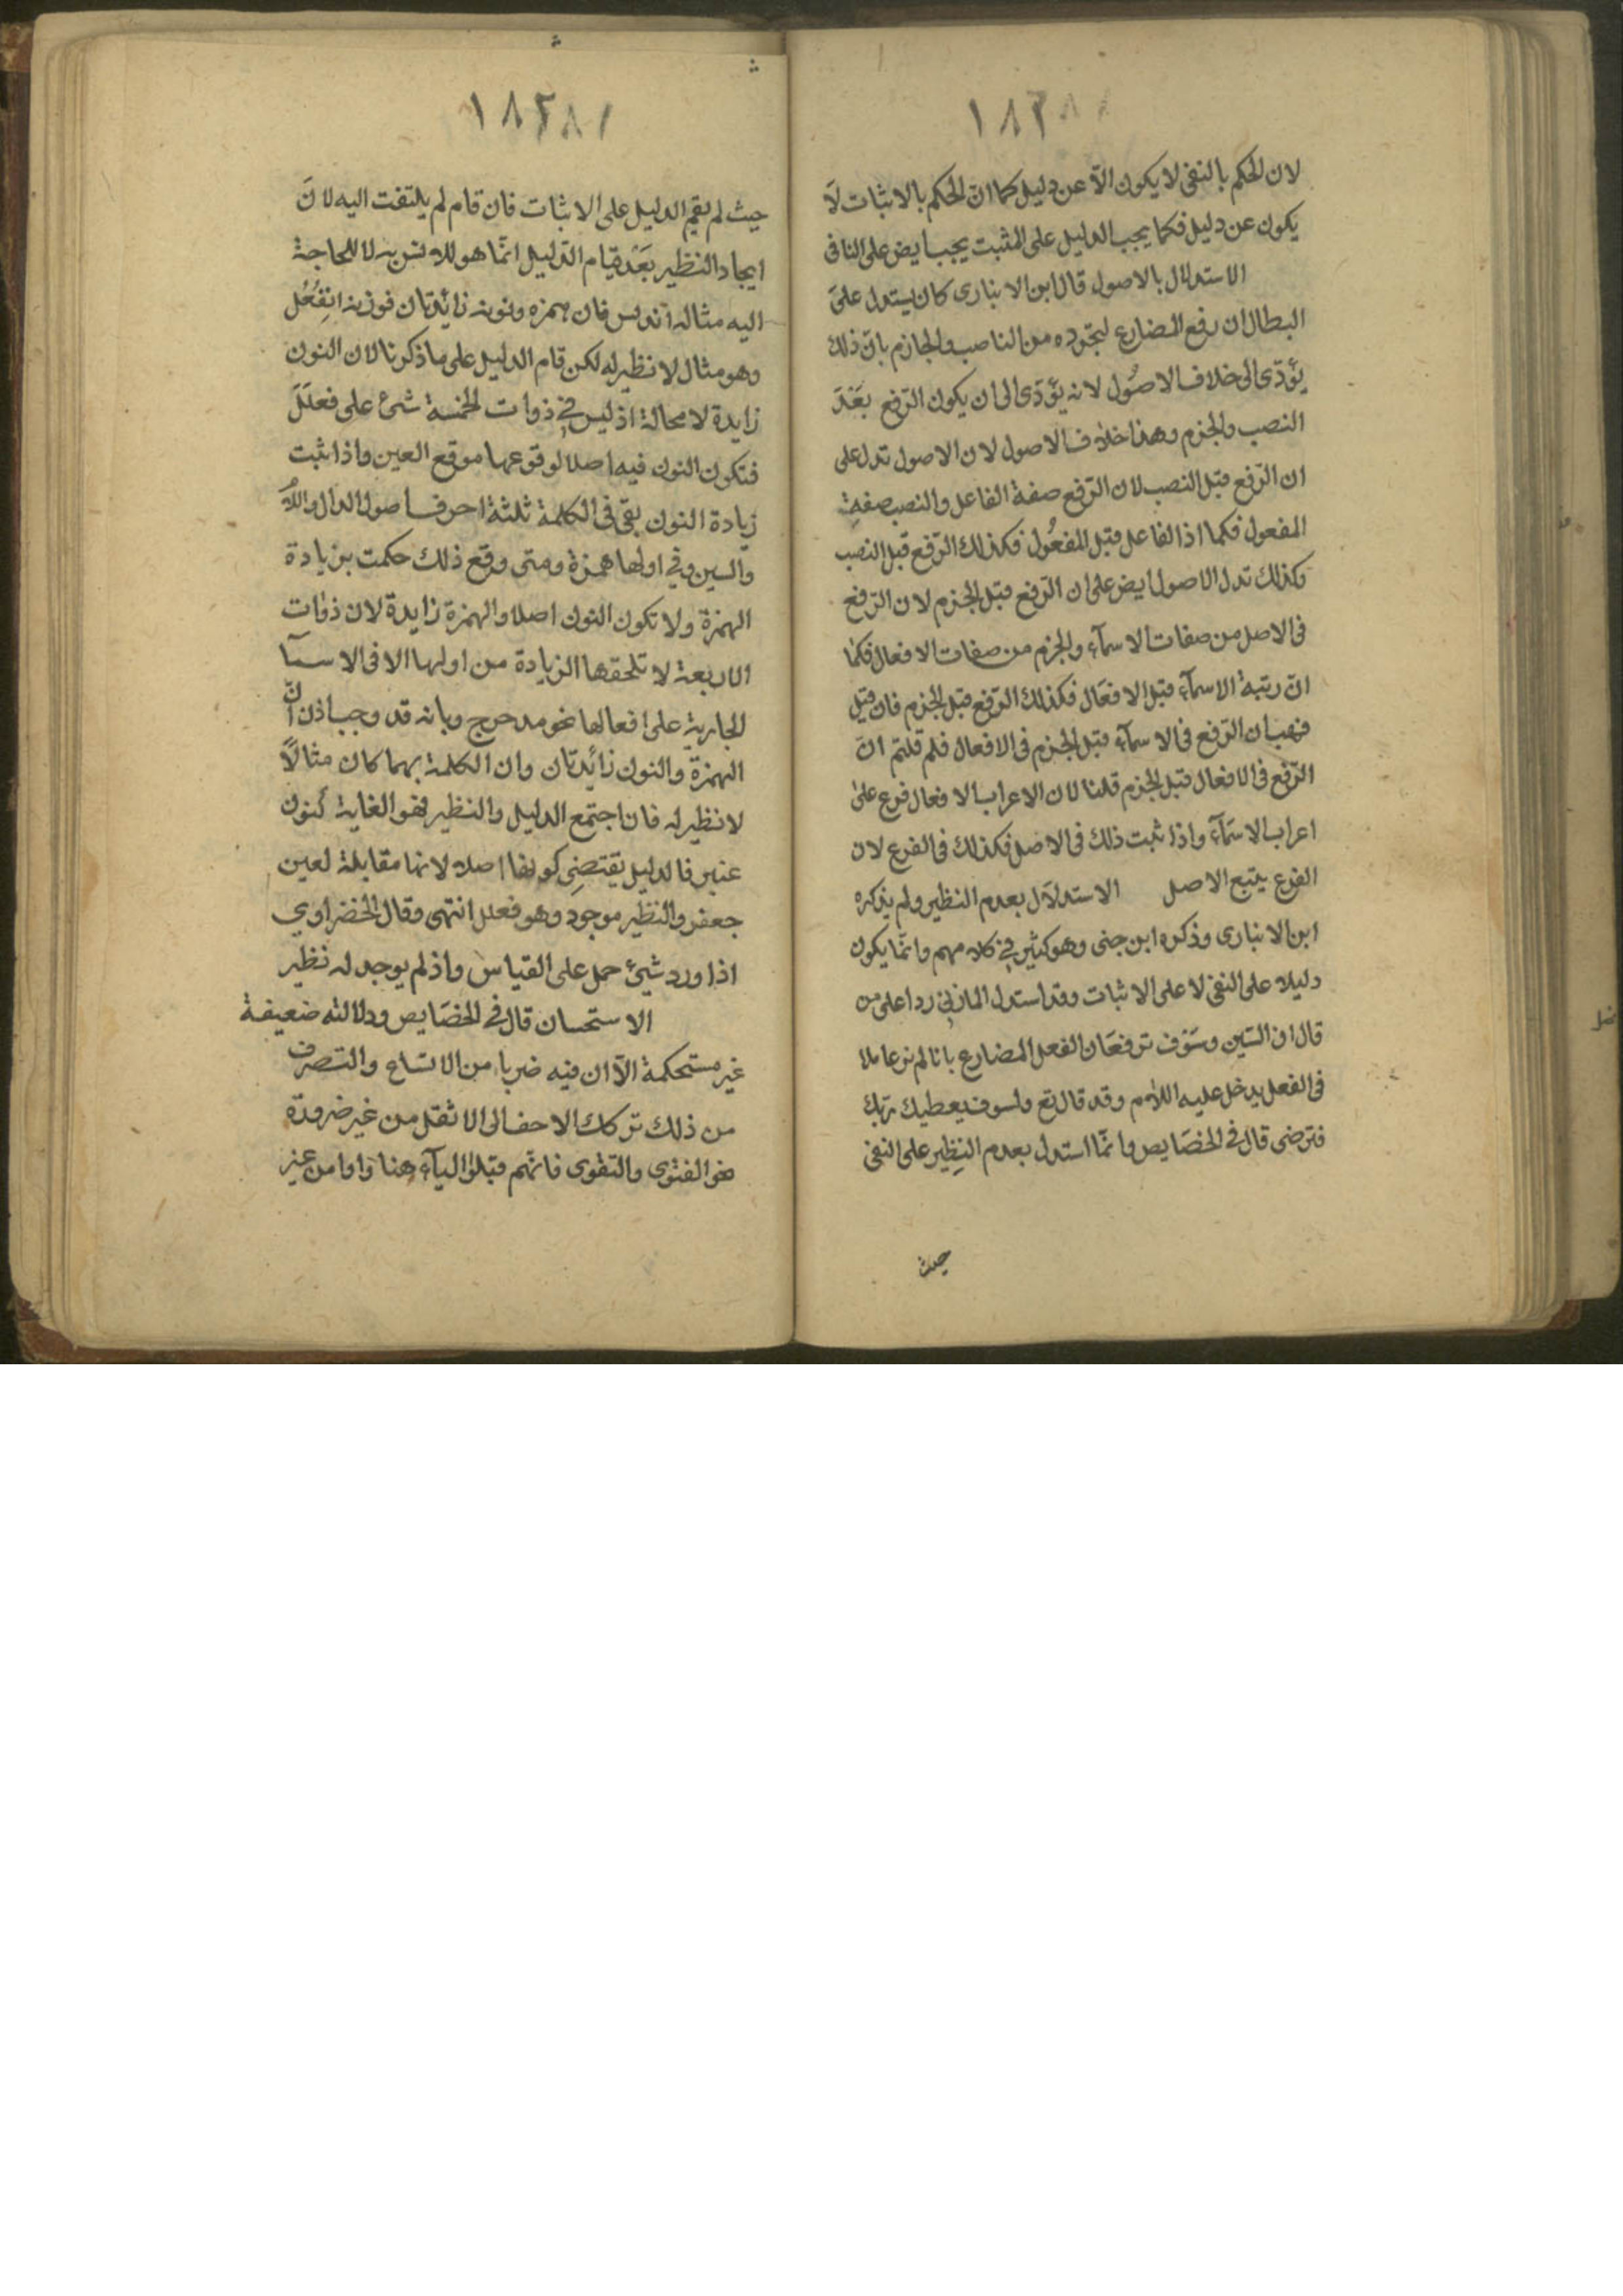 ١٨٢٨١
لان الحكم بالنفى لا يكون الّا عن دليل كما انّ الحكم بالاثبات لَا
يكون عن دليل فكما يجب الدليل على المثبت يجب ايض على النافى
الاستدلال بالاصول قال ابن الانبارى كان يستدل على
ابطال ان رفع المضارع لتجرده من الناصب والجازم بانّ ذلك
يؤدّى الى خلاف الاصُول لانه يؤدّى الى ان يكون الرّفع بَعْدَ
النصب والجزم وهذا خلاف الاصول لان الاصول تدل على
ان الرّفع قبل النصب لان الرّفع صفة الفاعل والنصب صفةِ
المفعول فكما اذ الفاعل قبل المفعُول فكذلك الرّفع قبل النصب
وكذلك تدل الاصول ايض على ان الرّفع قبل الجزم لان الرّفع
فى الاصل من صفات الاسمآء والجزم من صفات الافعال فكما
انّ رتبة الاسمآء قبل الافعَال فكذلك الرّفع قبل الجزم فان قيل
فهب ان الرّفع فى الاسمآء قبل الجزم فى الافعال فلم قلتم انّ
الرّفع فى الافعال قبل الجزم قلنا لان الاعراب الافعال فرع على
اعراب الاسَمآء واذا ثبت ذلك فى الاصل فكذلك فى الفرع لان
الفرع يتبع الاصل الاستدلَال بعدم النظير ولم يذكره
ابن الانبارى وذكره ابن جنى وهو كثير في كلامهم وانّما يكون
دليلا على النفى لا على الاثبات وقد استدل المازني ردا على من
قال ان السّين وسَوف ترفعَان الفعل المضارع بانا لم نر عاملا
فى الفعل يدخل عليه اللام وقد قال تع ولسوف يعطيك ربّك
فترضى قال فى الخصَايص وانمّا استدل بعدم النِظير على النفى
حيث
١٨٢٨١
حيث لم يقم الدليل على الاثبات فان قام لم يلتفت اليه لانَ
ايجاد النظير بَعْد قيام الدّليل انمّا هو للانس به لا للحاجة
اليه مثاله أندلس فان همزه ونونه زائدتان فوزنه انفِعُل
وهو مثال لا نظير له لكن قام الدليل على ما ذكرنا لان النون
زايدة لا محالة اذ ليس في ذوات الخمسة شئ على فعلَلَ
فتكون النون فيه اصلا لوقوعها موقع العين واذا ثبت
زيادة النون بقى فى الكلمة ثلثة احرف اصول الدال واللام
والسين وفي اولها همزة ومتى وقع ذلك حكمت بزيادة
الهمزة ولا تكون النون اصلا والهمزة زايدة لان ذوات
الاربعة لا تلحقها الزيادة من اولها الا فى الاسمآ
الجارية على افعالها نحو مدحرج وبانه قد وجب اذن انّ
الهمزة والنون زائدتان وان الكلمة بهما كان مثالًا
لا نظير له فان اجتمع الدليل والنظير فهو الغاية كنون
عنبر فالدليل يقتضِى كونها اصلا لانها مقابلة لعين
جعفر والنظير موجود وهو فعلل انتهى وقال الخضراوي
اذا ورد شئ حمل على القياس واذ لم يوجد له نظير
الاستحسان قال في الخصَايص ودلالته ضعيفة
غير مستحكمة الّا ان فيه ضربا من الاتساع والتصرف
من ذلك تركك الاخف الى الاثقل من غير ضرورة
نحو الفتوى والتقوى فانهّم قبلوا اليآء هنا واوا من غير